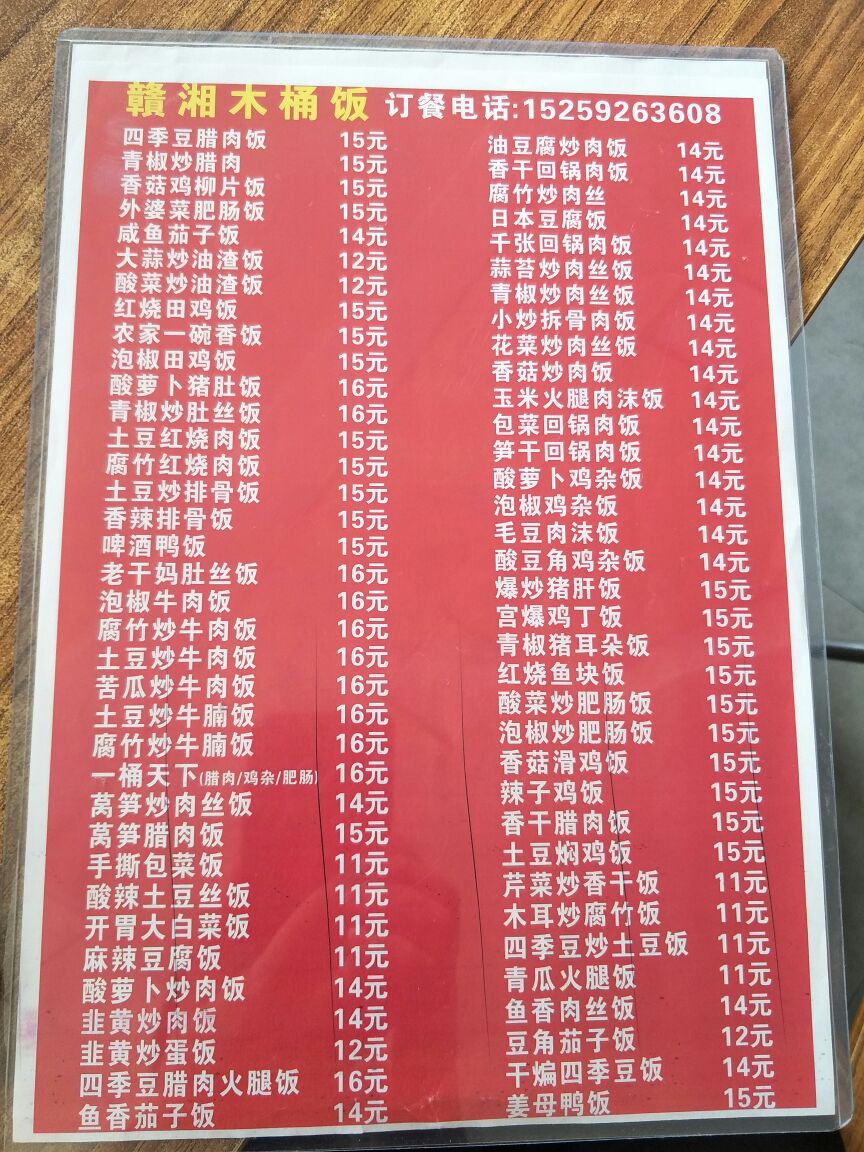 赣湘木桶饭 订餐电话:15259263608
四季豆腊肉饭 15元
青椒炒腊肉 15元
香菇鸡柳片饭 15元
外婆菜肥肠饭 15元
咸鱼茄子饭 14元
大蒜炒油渣饭 12元
酸菜炒油渣饭 12元
红烧田鸡饭 15元
农家一碗香饭 15元
泡椒田鸡饭 15元
酸萝卜猪肚饭 16元
青椒炒肚丝饭 16元
土豆红烧肉饭 15元
腐竹红烧肉饭 15元
土豆炒排骨饭 15元
香辣排骨饭 15元
啤酒鸭饭 15元
老干妈肚丝饭 16元
泡椒牛肉饭 16元
腐竹炒牛肉饭 16元
土豆炒牛肉饭 16元
苦瓜炒牛肉饭 16元
土豆炒牛腩饭 16元
腐竹炒牛腩饭 16元
一桶天下(腊肉/鸡杂/肥肠) 16元
莴笋炒肉丝饭 14元
莴笋腊肉饭 15元
手撕包菜饭 11元
酸辣土豆丝饭 11元
开胃大白菜饭 11元
麻辣豆腐饭 11元
酸萝卜炒肉饭 14元
韭黄炒肉饭 14元
韭黄炒蛋饭 12元
四季豆腊肉火腿饭 16元
鱼香茄子饭 14元
油豆腐炒肉饭 14元
香干回锅肉饭 14元
腐竹炒肉丝 14元
日本豆腐饭 14元
千张回锅肉饭 14元
蒜苔炒肉丝饭 14元
青椒炒肉丝饭 14元
小炒拆骨肉饭 14元
花菜炒肉丝饭 14元
香菇炒肉饭 14元
玉米火腿肉沫饭 14元
包菜回锅肉饭 14元
笋干回锅肉饭 14元
酸萝卜鸡杂饭 14元
泡椒鸡杂饭 14元
毛豆肉沫饭 14元
酸豆角鸡杂饭 14元
爆炒猪肝饭 15元
宫爆鸡丁饭 15元
青椒猪耳朵饭 15元
红烧鱼块饭 15元
酸菜炒肥肠饭 15元
泡椒炒肥肠饭 15元
香菇滑鸡饭 15元
辣子鸡饭 15元
香干腊肉饭 15元
土豆焖鸡饭 15元
芹菜炒香干饭 11元
木耳炒腐竹饭 11元
四季豆炒土豆饭 11元
青瓜火腿饭 11元
鱼香肉丝饭 14元
豆角茄子饭 12元
干煸四季豆饭 14元
姜母鸭饭 15元